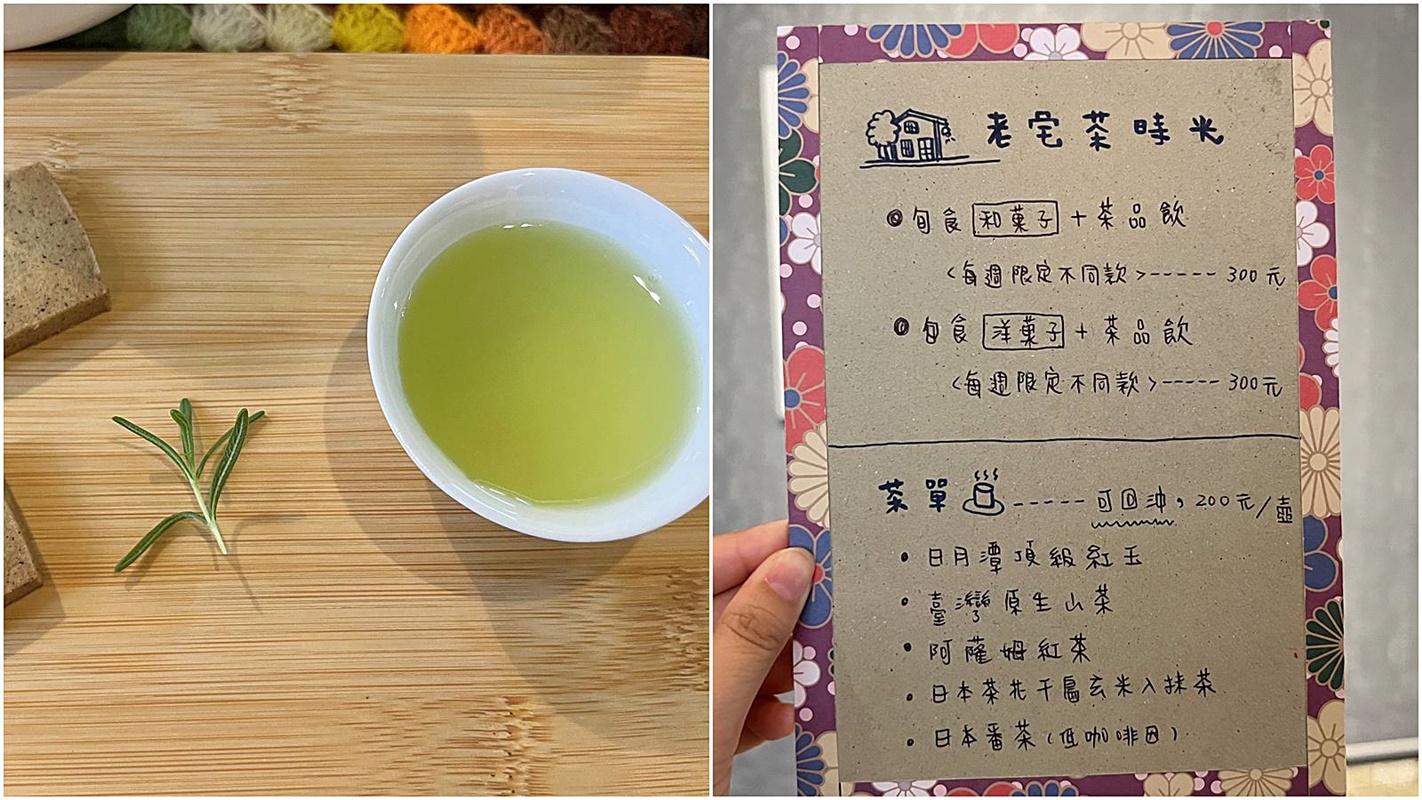 老宅茶時光
旬食 和菓子 + 茶品飲
<每週限定不同款>----- 300元
旬食 洋菓子 + 茶品飲
<每週限定不同款>----- 300元
茶單 ----- 可回沖，200元/壺
• 日月潭頂級紅玉
• 臺灣原生山茶
• 阿薩姆紅茶
• 日本茶花千鳥玄米入抹茶
• 日本番茶(低咖啡因)